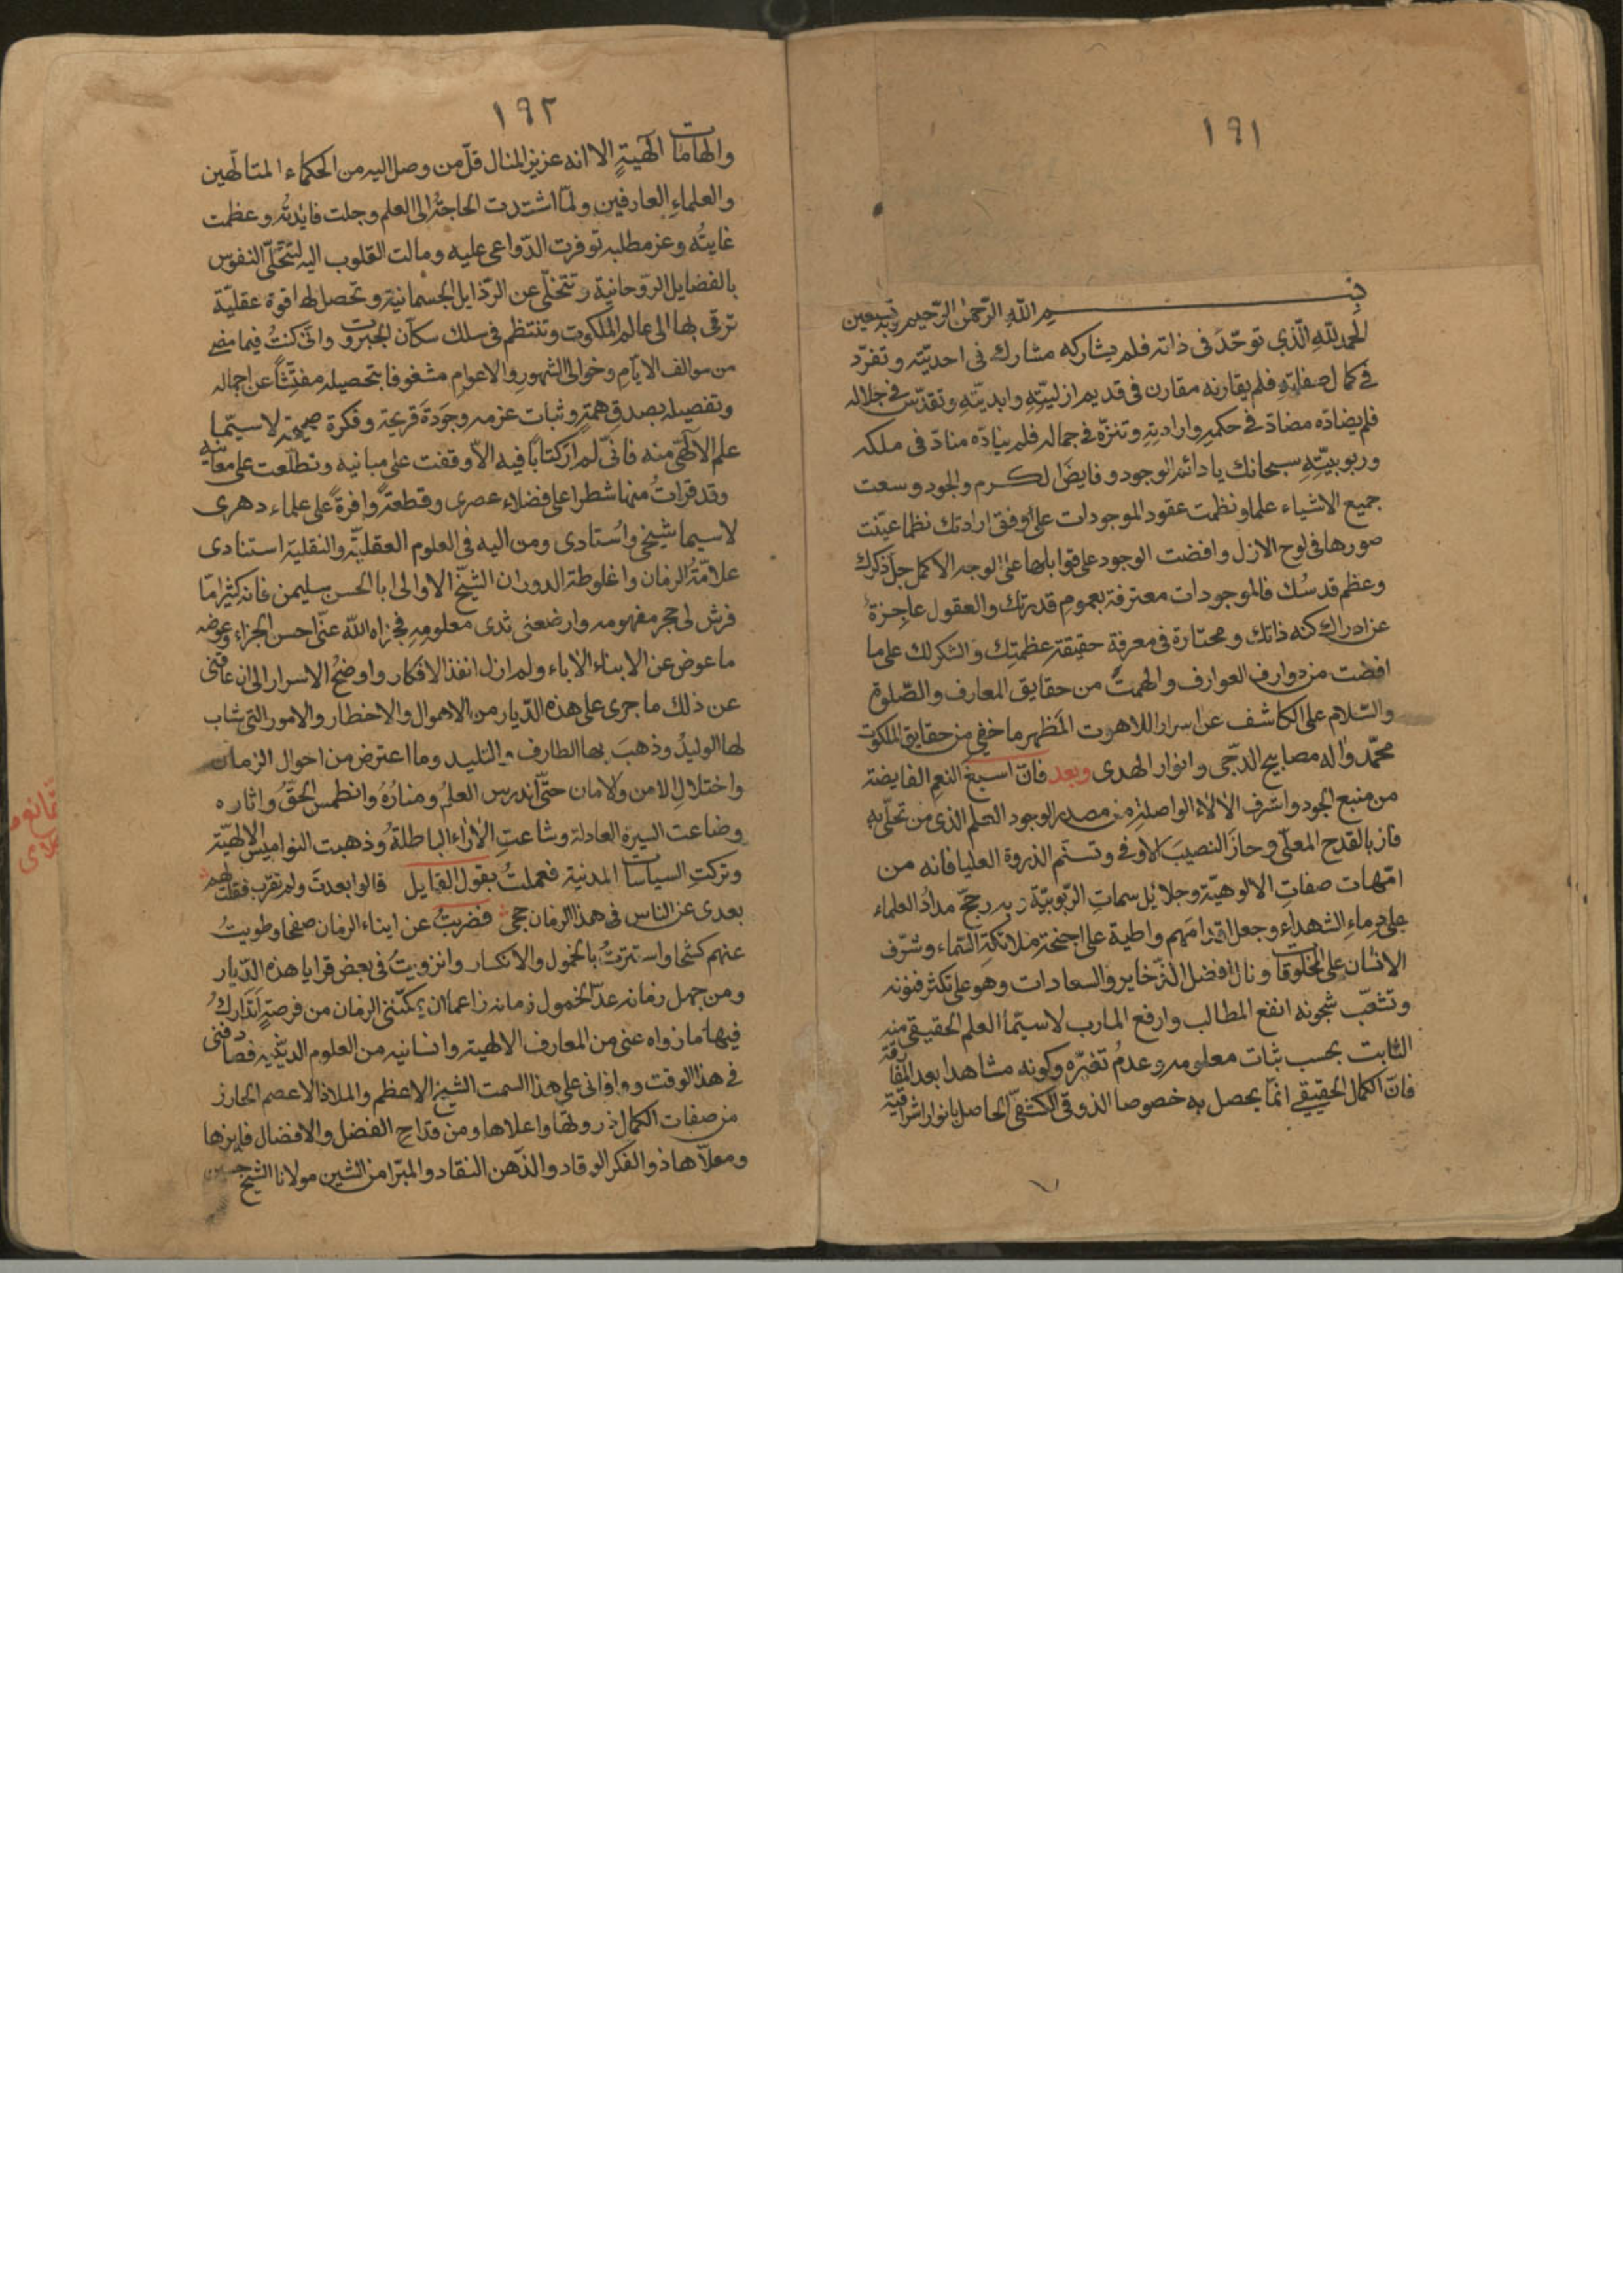 ١٩١
بسم الله الرّحمن الرّحيم وبه نستعين
الحمد لله الّذي توحّدَ فى ذاته فلم يشاركه مشارك فى احديّته وتفرّد
فى كمال صفاتِهِ فلم يقارنه مقارن فى قديم ازليّتِهِ وابديّتِهِ وتقدّس فى جلاله
فلم يضادّه مضادّ فى حكمِهِ وارادتِهِ وتنزّه فى جماله فلم ينادّه منادّ فى ملكه
وربوبيّتِهِ سبحانك يا دائم الوجود وفايض الكرم والجود وسعت
جميع الاشياء علما ونظمت عقود الموجودات على اوفق ارادتك نظما عيّنت
صورها فى لوح الازل وافضت الوجود على قوابلها على الوجه الاكمل جلّ ذكرك
وعظم قدسُك فالموجودات معترفة بعموم قدرتك والعقول عاجزة
عن ادراك كنه ذاتك ومحتارة فى معرفة حقيقة عظمتِك والشكر لك على ما
افضت من دوارف العوارف والهمتَ من حقايق المعارف والصّلوة
والسّلام على الكاشف عن اسرار اللاهوت المظهر ما خفى من حقايق الملكوت
محمّد واله مصابيح الدجّى وانوار الهدى وبعد فانّ اسبغ النعم الفايضة
من منبع الجود واشرف الالاء الواصلة من مصدر الوجود العلم الذى من تحلّى به
فاز بالقدح المعلّى وحازَ النصيبَ الاوفى وتسنّم الذروة العليا فانه من
امّهات صفاتِ الالوهيّة وجلائل سماتِ الرّبوبيّة وبه رجحّ مدادُ العلماء
على دماءِ الشهداء وجعل اقدامهم واطية على اجنحة ملائكة السّماء وشرّف
الانسان على المخلوقات ونال افضل الذّخاير والسعادات وهو على تكثر فنونه
وتشعّب شجونه انفع المطالب وارفع المارب لاسيّما العلم الحقيقى منه
الثابت بحسب ثبات معلومه وعدمُ تغيّره وكونه مشاهدا بعد المفارقة
فانّ الكمال الحقيقى انمّا يحصل به خصوصا الذوقى الكشفىّ الحاصل بانوار اشراقية
١٩٢
والهامات الهيةٍ الا انه عزيز المنال قلّ من وصل اليه من الحكماء المتالّهين
والعلماءِ العارفين ولمّا اشتدت الحاجةُ الى العلم وجلت فايدتُه وعظمت
غايتُه وعز مطلبه توفرت الدّواعى عليه ومالت القلوب اليه لتتحلّى النفوس
بالفضايل الرّوحانية وتتخلّى عن الرّذايل الجسمانية وتحصل لها قوة عقليّة
ترقى بها الى عالم الملكوت وتنتظم فى سلك سكّان الجبروت وانّى كنتُ فيما مضى
من سوالف الايّامِ وخوالى الشهورِ والاعوامِ مشغوفا بتحصيله مفتّشاً عن اجماله
وتفصيله بصدق همةٍ وثبات عزمه وجَودَة قريحة وفكرة صحيحة لاسيّما
علم الالهّى منه فانّى لم ار كتاباً فيه الاّ وقفت على مبانيه وتطلّعت على معانيه
وقد قرات منها شطرا على فضلاء عصرى وقطعةً وافرةً على علماء دهرى
لاسيما شيخى واُستادى ومن اليه فى العلوم العقليّة والنقلية استنادى
علامّةُ الزمان واغلوطة الدوران الشيخ الاوالى ابا الحسن سليمن فانه كثيرا ما
فرش لى حجر مفهومه وارضعنى ثدى معلومِهِ فجزاه الله عنّى احسن الجزاء وعوضه
ما عوض عن الابناء الاباء ولم ازل انفذ الافكار واوضحُ الاسرار الى ان عاقنى
عن ذلك ما جرى على هذه الدّيار من الاهوال والاخطار والامور التى شاب
لها الوليدُ وذهبَ بها الطارف والتليد وما اعترض من احوال الزمان
واختلالِ الامن والامان حتّى اندرس العلمُ ومنارُهُ وانطمس الحقُّ واثاره
وضاعت السيرة العادلة وشاعتِ الاراءُ الباطلةُ وذهبت النواميسُ الالهيّة
وتركتِ السياسات المدنية فعملتُ بقول القايل قالوا بعدتَ ولم تقرب فقلت لهم
بعدى عن الناس فى هذا الزمان حجى فضربتُ عن ابناء الزمان صفحا وطويتُ
عنهم كشحا واستترتُ بالخمول والانكسار وانزويتُ فى بعض قرايا هذه الدّيار
ومن جهل زمانه عدّ الخمول زمانه زاعما ان يمكنّنى الزمان من فرصةٍ اَتَدَارَكُ
فيها ما زواه عنى من المعارف الالهية وانسانيه من العلوم الدينية فصادفنى
فى هذا الوقت ووافانى على هذا السمت الشيخ الاعظم والملاذ الاعصم الحارز
من صفات الكمال ذروتها واعلاها ومن قداحِ الفضل والافضال فايزها
ومعلاّها ذو الفكر الوقاد والذّهن النقاد والمبّرا من الشين مولانا الشيخ حسين